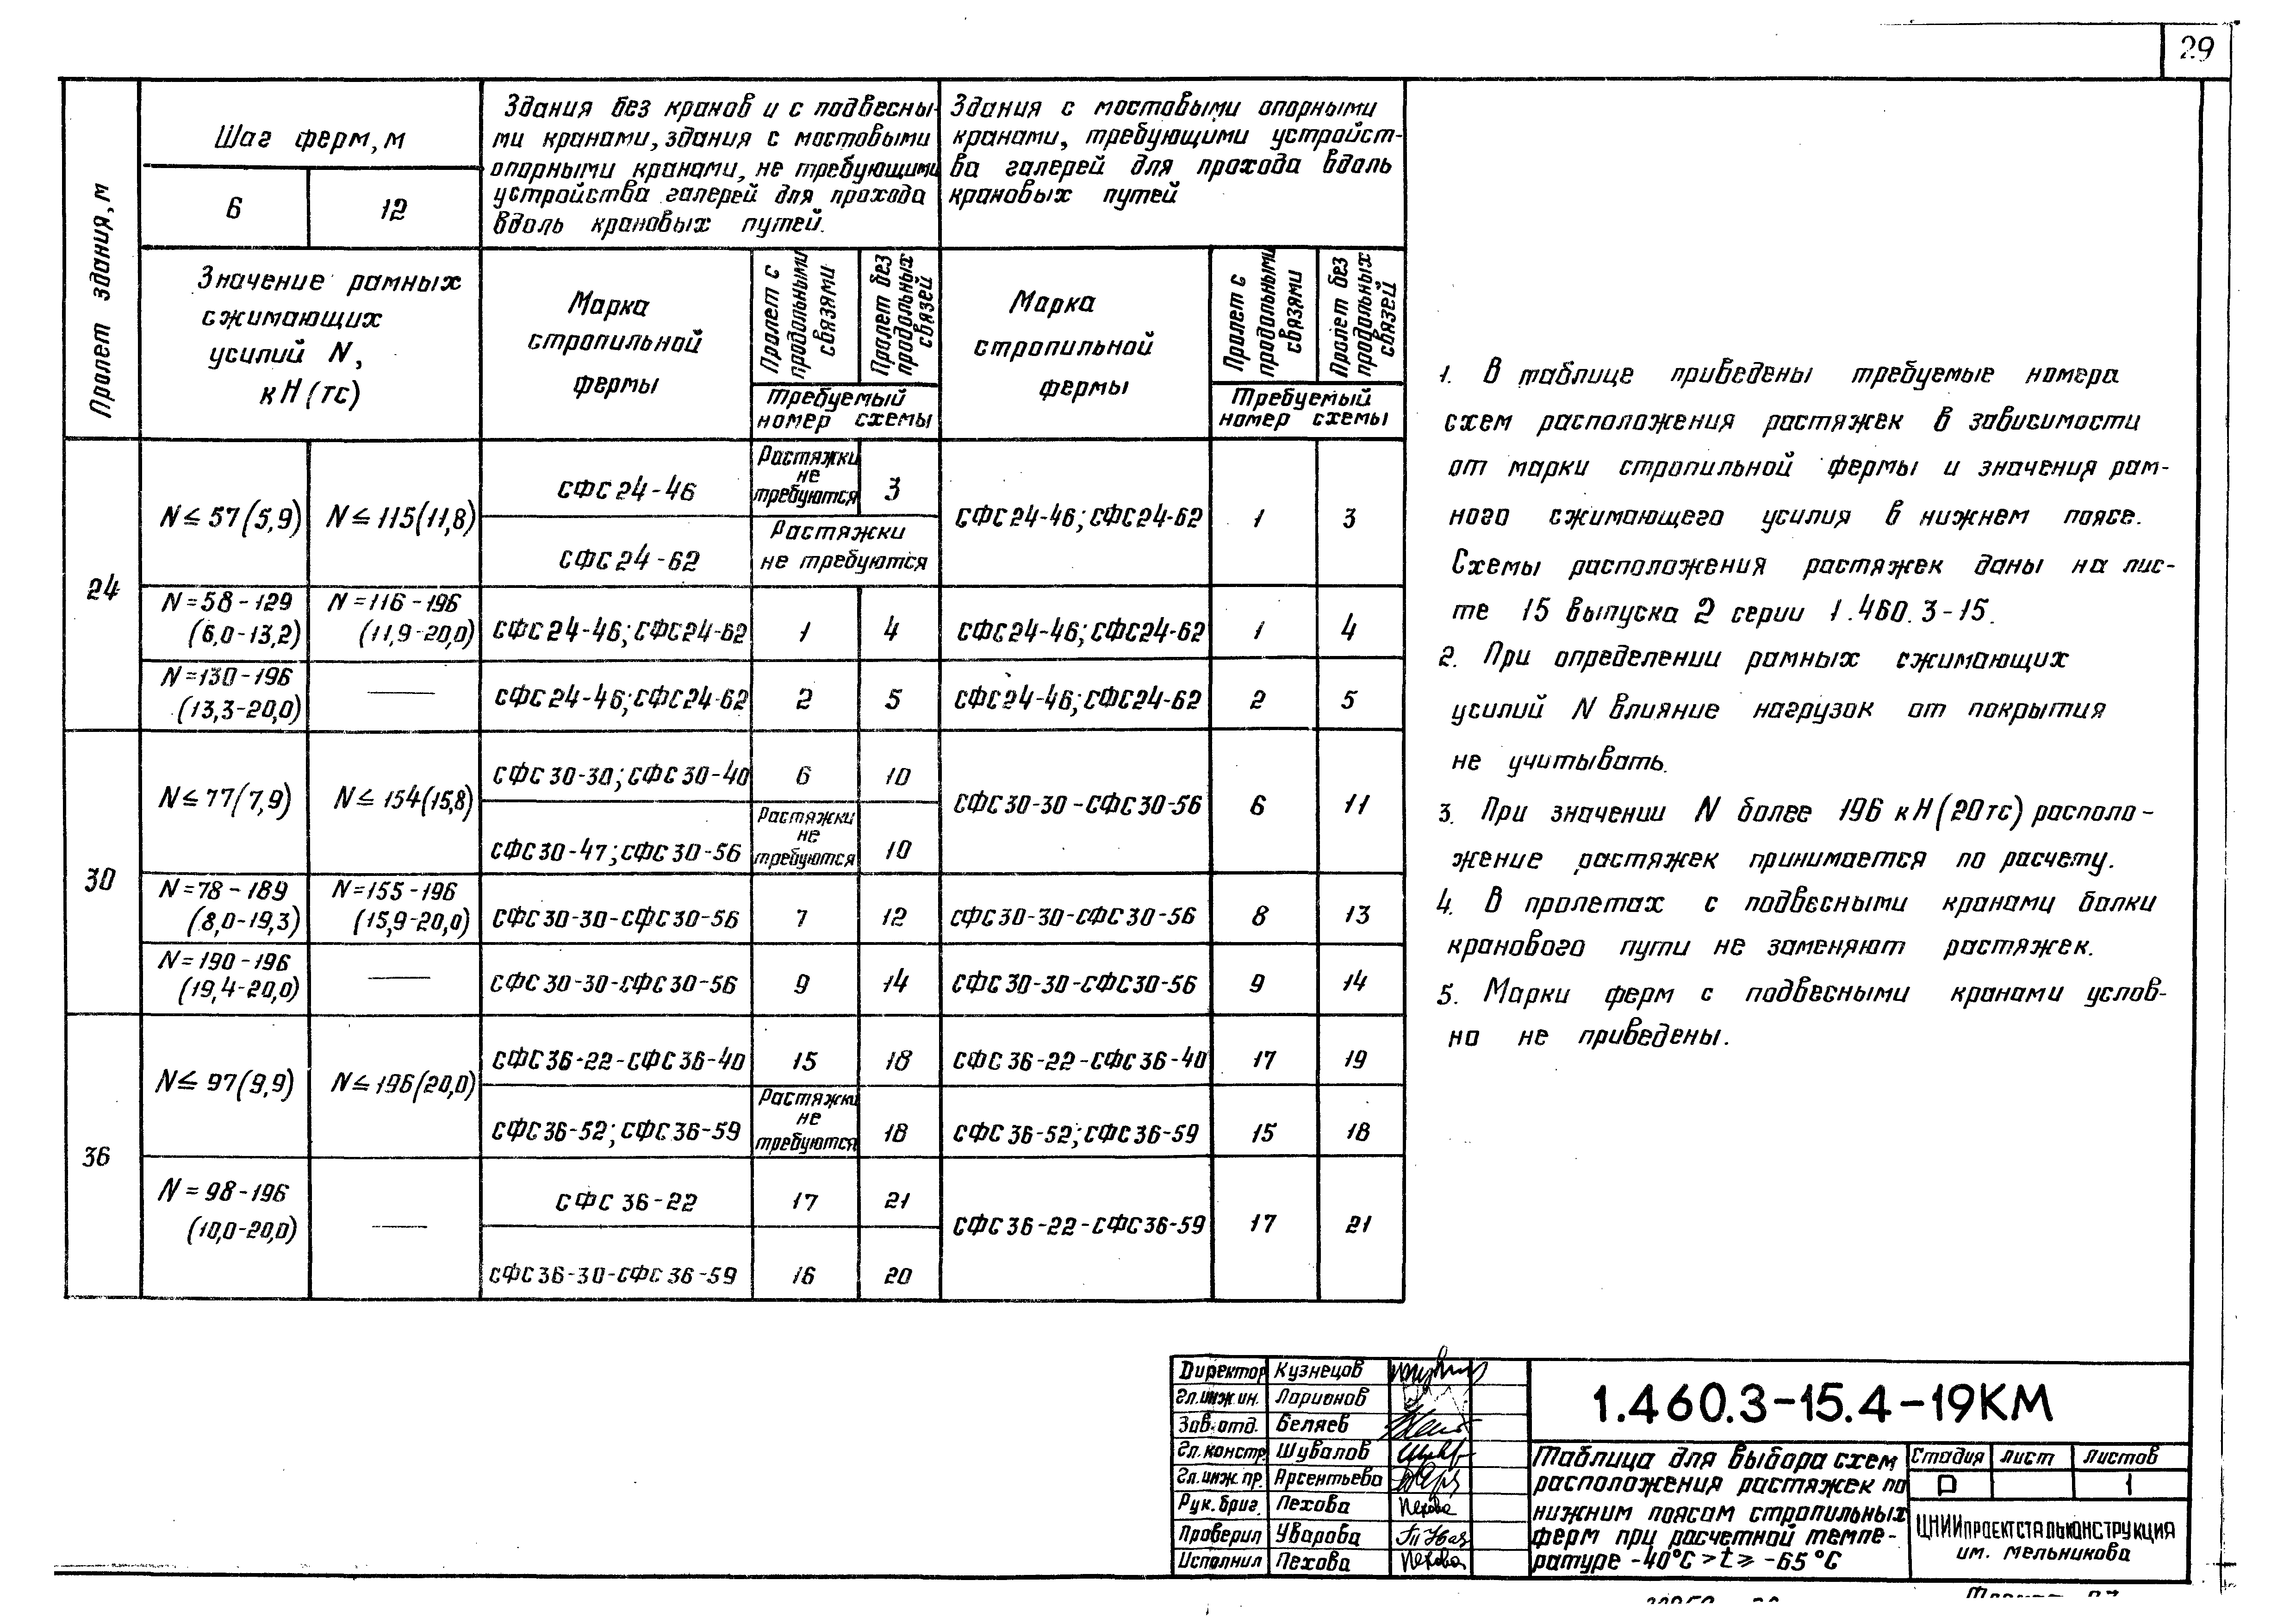 29
Пролет здания, м
Шаг ферм, м
6
12
Здания без кранов и с подвесны-
ми кранами, здания с мостовыми
опорными кранами, не требующими
устройства галерей для прохода
вдоль крановых путей.
Здания с мостовыми опорными
кранами, требующими устройст-
ва галерей для прохода вдоль
крановых путей
Значение рамных
сжимающих
усилий N,
кН (тс)
Марка
стропильной
фермы
Пролет с
продольными
связями
Пролет без
продольных
связей
Требуемый
номер схемы
Марка
стропильной
фермы
Пролет с
продольными
связями
Пролет без
продольных
связей
Требуемый
номер схемы
24
N ≤ 57 (5,9)
N ≤ 115 (11,8)
СФС 24-46
Растяжки
не
требуются
3
СФС 24-62
Растяжки
не требуются
СФС 24-46; СФС 24-62
1
3
N = 58 - 129
(6,0-13,2)
N = 116 - 196
(11,9-20,0)
СФС 24-46; СФС 24-62
1
4
СФС 24-46; СФС 24-62
1
4
N = 130 - 196
(13,3-20,0)
—
СФС 24-46; СФС 24-62
2
5
СФС 24-46; СФС 24-62
2
5
30
N ≤ 77 (7,9)
N ≤ 154 (15,8)
СФС 30-30; СФС 30-40
6
10
СФС 30-47; СФС 30-56
Растяжки
не
требуются
10
СФС 30-30 - СФС 30-56
6
11
N = 78 - 189
(8,0-19,3)
N = 155 - 196
(15,9-20,0)
СФС 30-30 - СФС 30-56
7
12
СФС 30-30 - СФС 30-56
8
13
N = 190 - 196
(19,4-20,0)
—
СФС 30-30 - СФС 30-56
9
14
СФС 30-30 - СФС 30-56
9
14
36
N ≤ 97 (9,9)
N ≤ 196 (20,0)
СФС 36-22 - СФС 36-40
15
18
СФС 36-22 - СФС 36-40
17
19
СФС 36-52; СФС 36-59
Растяжки
не
требуются
18
СФС 36-52; СФС 36-59
15
18
N = 98 - 196
(10,0-20,0)
—
СФС 36-22
17
21
СФС 36-30 - СФС 36-59
16
20
СФС 36-22 - СФС 36-59
17
21
1. В таблице приведены требуемые номера
схем расположения растяжек в зависимости
от марки стропильной фермы и значения рам-
ного сжимающего усилия в нижнем поясе.
Схемы расположения растяжек даны на лис-
те 15 выпуска 2 серии 1.460.3-15.
2. При определении рамных сжимающих
усилий N влияние нагрузок от покрытия
не учитывать.
3. При значении N более 196 кН (20 тс) располо-
жение растяжек принимается по расчету.
4. В пролетах с подвесными кранами балки
кранового пути не заменяют растяжек.
5. Марки ферм с подвесными кранами услов-
но не приведены.
Директор Кузнецов
Гл. инж ин. Ларионов
Зав. отд. Беляев
Гл. констр. Шувалов
Гл. инж. пр. Арсентьева
Рук. бриг. Пехова Пехова
Проверил Уварова
Исполнил Пехова Пехова
1.460.3-15.4-19КМ
Таблица для выбора схем
расположения растяжек по
нижним поясам стропильных
ферм при расчетной темпе-
ратуре -40°С > t ≥ -65°С
Стадия Лист Листов
Р 1
ЦНИИПРОЕКТСТАЛЬКОНСТРУКЦИЯ
им. Мельникова